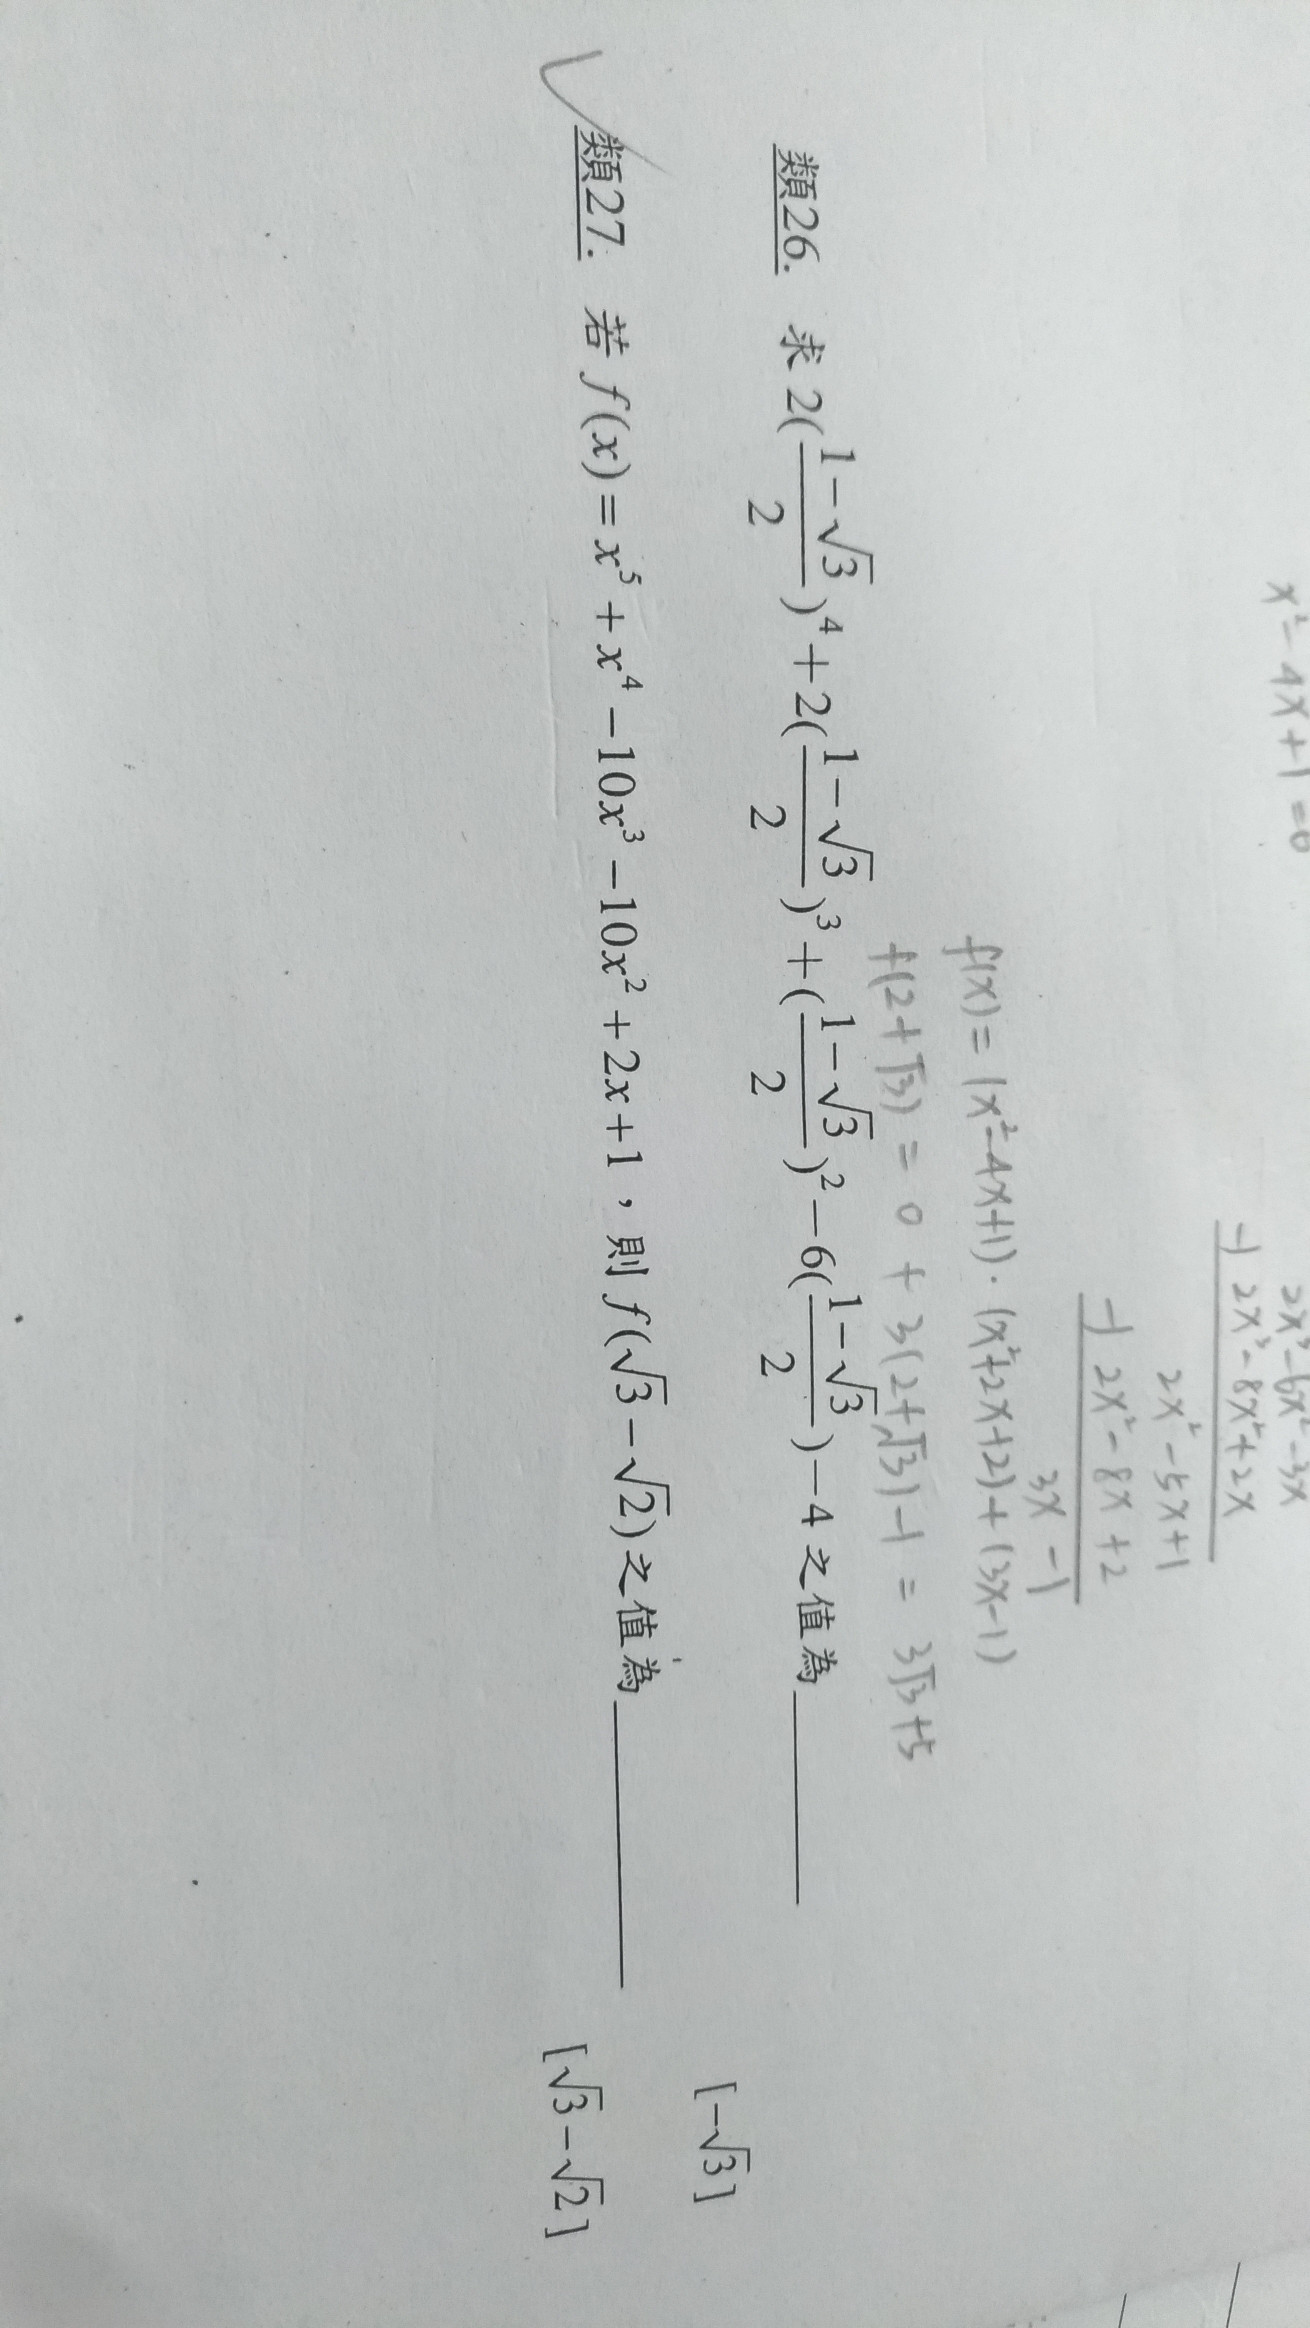 x² - 4x + 1 = 0
2x³ - 6x² - 3x
-) 2x³ - 8x² + 2x
2x² - 5x + 1
-) 2x² - 8x + 2
3x - 1
f(x) = (x² - 4x + 1)·(x² + 2x + 2) + (3x - 1)
f(2+√3) = 0 + 3(2+√3) - 1 = 3√3 + 5
類26. 求 2((1-√3)/2)⁴ + 2((1-√3)/2)³ + ((1-√3)/2)² - 6((1-√3)/2) - 4 之值為________
[-√3]
類27. 若 f(x) = x⁵ + x⁴ - 10x³ - 10x² + 2x + 1，則 f(√3 - √2) 之值為________
[√3 - √2]